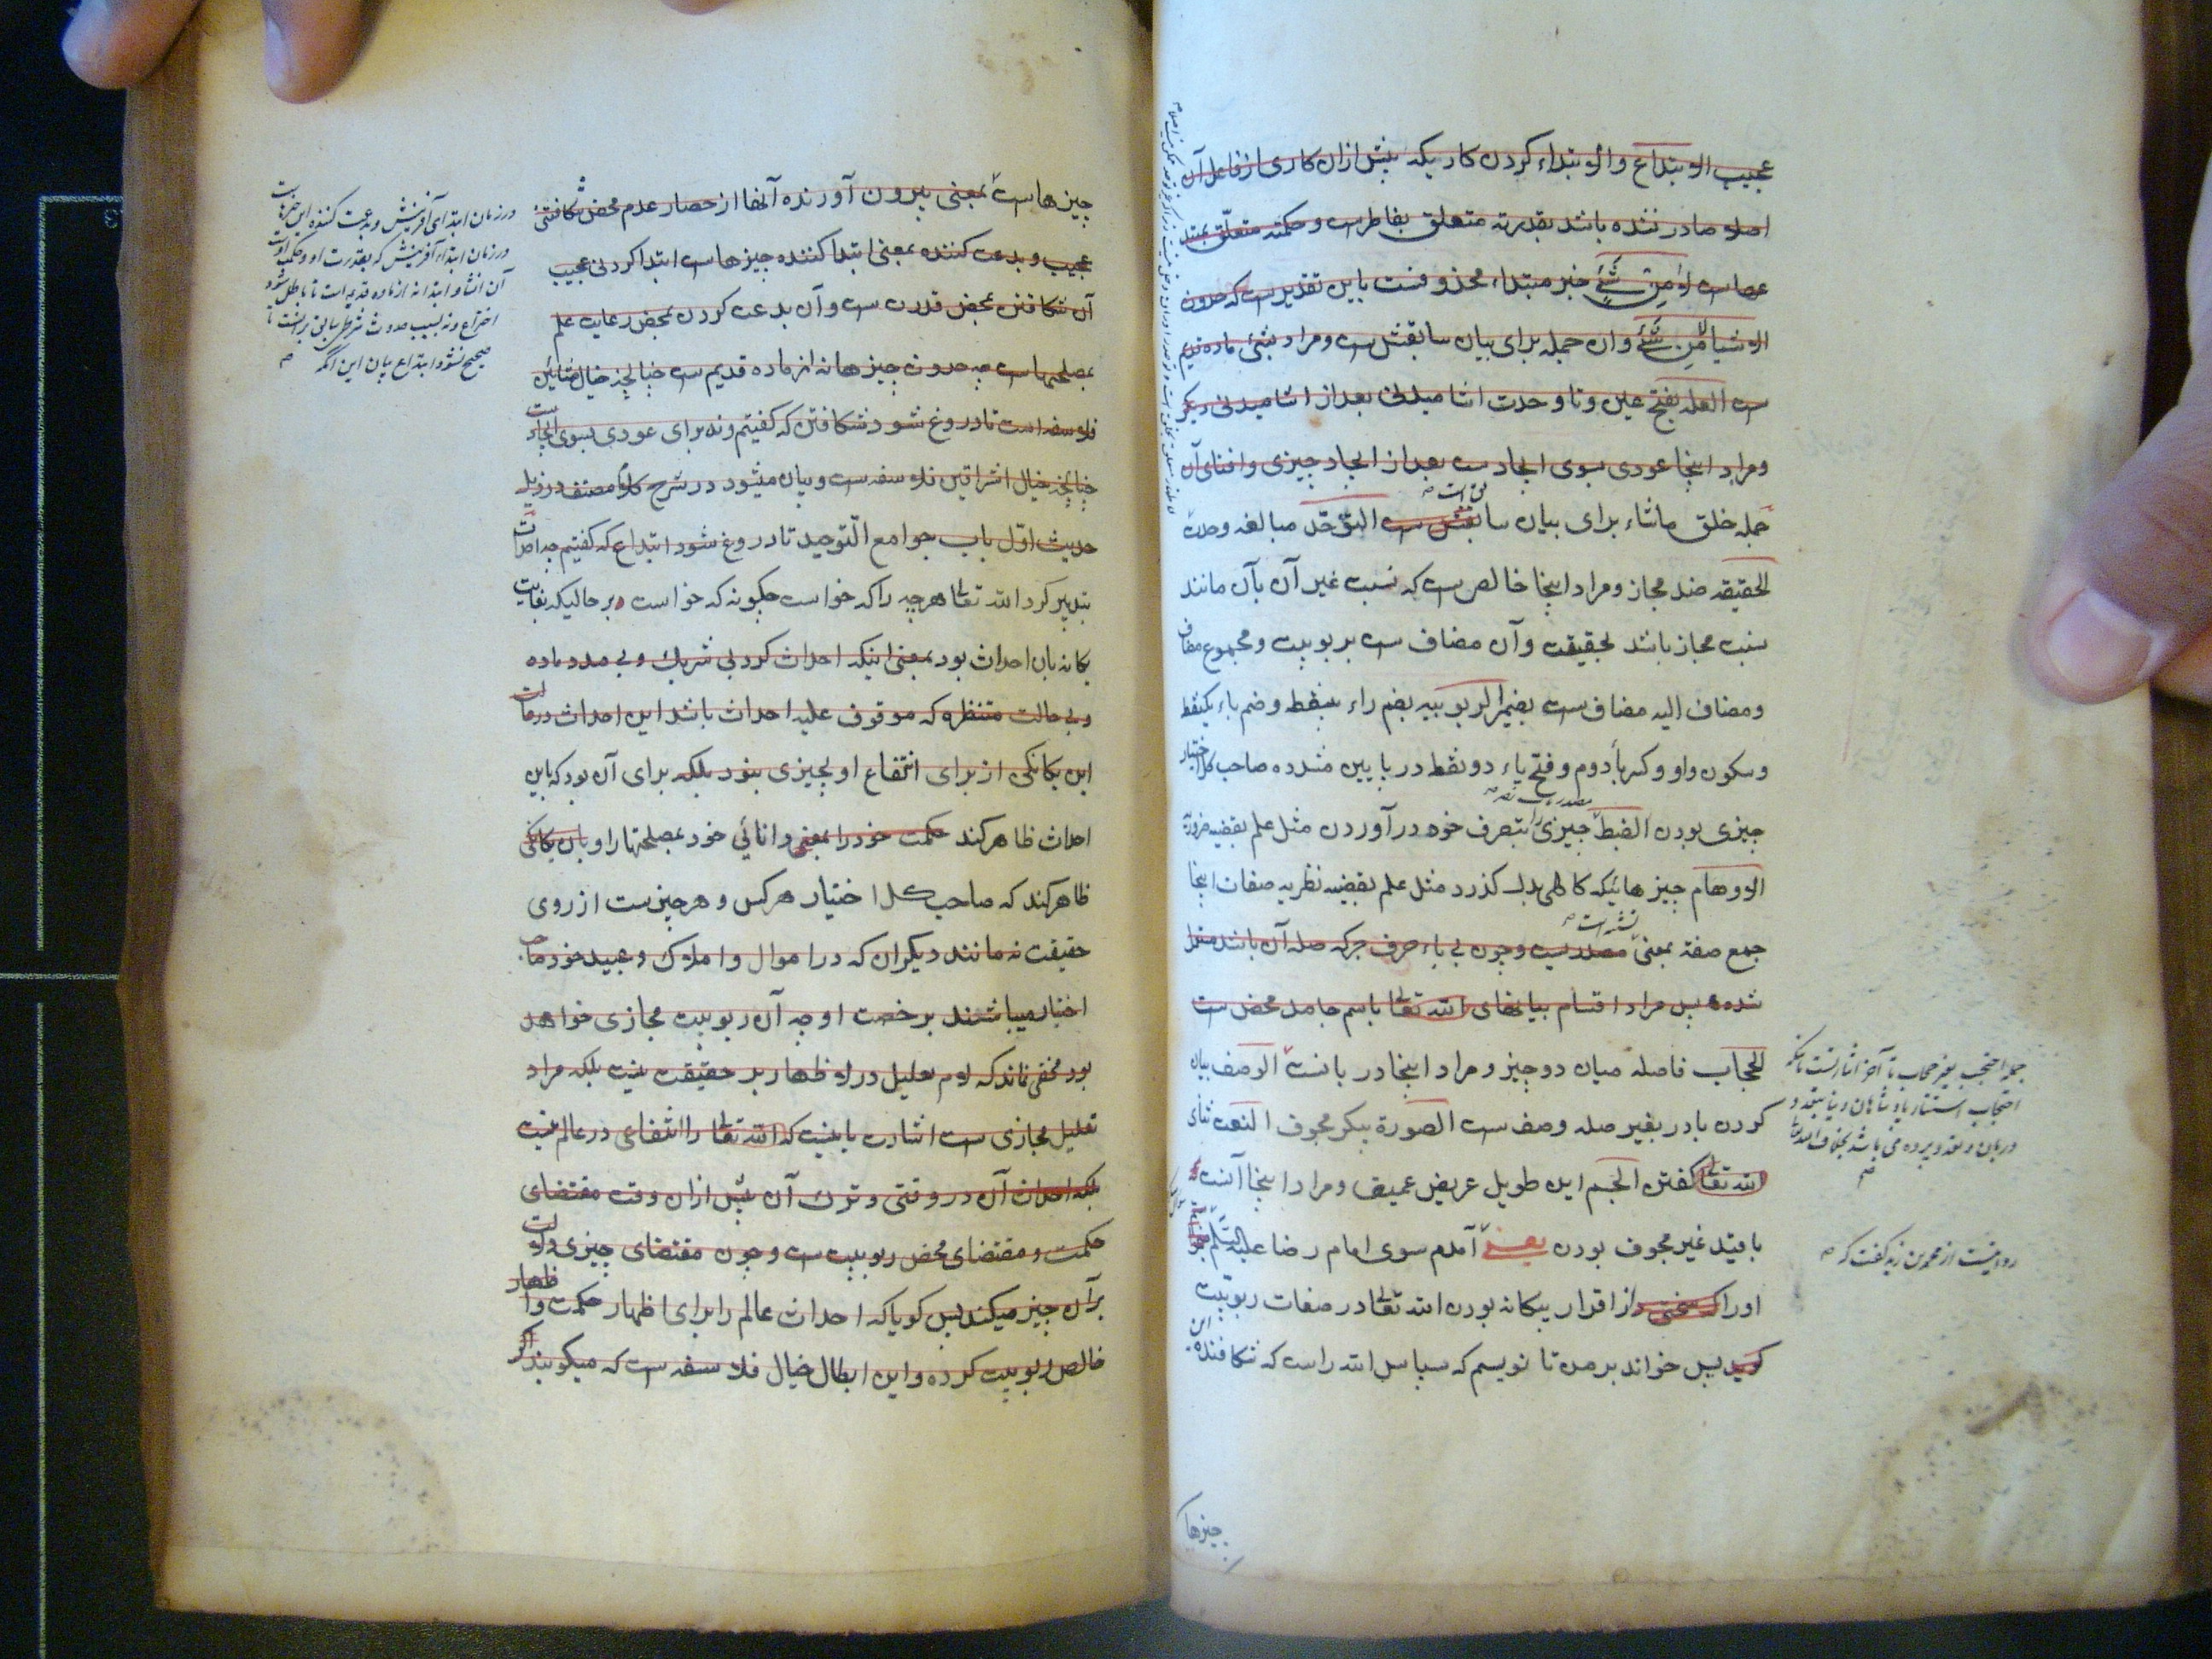 عجیب الابتداع والابتداء کردن کاریکه پیش ازان کاری ازفاعل آن
اصلا صادر نشده باشد بقدرته متعلق بفاطرست وحکمته متعلّق بمبتد
عهاست لا من شیٔ خبر مبتداء محذوفست باین تقدیرست که حدوث
الاشیا لا من شیٔ وان جمله برای بیان سابقش ست ومراد بشیٔ ماده قدیم
ست العله بفتح عین وتا وحدت اشامیدنی بعد از اشامیدنی دیگر
ومراد اینجا عودی بسوی ایجاد ست بعد از ایجاد چیزی وافنای آن
جمله خلق ماشاء برای بیان سابقش ست التوحّد مبالغه وحدت
الحقیقه ضد مجاز ومراد اینجا خالص ست که نسبت غیر آن بآن مانند
نسبت مجاز باشد بحقیقت وآن مضاف ست بربوبیت ومجموع مضاف
ومضاف الیه مضاف ست بضمیر الربوبیه بضم راء بینقط وضم باء یکنقط
وسکون واو وکسر باء دوم وفتح یاء دو نقطه در پایین مشدده صاحب کل اختیار
چیزی بودن الضبط چیزی را بتصرف خود در آوردن مثل علم بقضیه ضروریه
الاوهام چیزهائیکه کاهی بدل گذرد مثل علم بقضیه نظریه صفات اینجا
جمع صفة بمعنی مصدر ست وچون بی باء حرف جرکه صله آن باشد مستعمل
شده پس مراد اقسام بیانهای الله تعالی باسم جامد محض ست
الحجاب فاصله میان دو چیز ومراد اینجا دربانست الوصف بیان
کردن بادر بغیر صله وصف ست الصورة پیکر مجوف النعت ثنای
الله تعالی گفتن الجسم این طویل عریض عمیق ومراد اینجا آنست
باقید غیر مجوف بودن یعنی آمدم سوی امام رضا علیه السلام
اورا از اقرار بیگانه بودن الله تعالی در صفات ربوبیّت
پس خواند برمن تا نویسم که سپاس الله راست که شکافنده
این
چیزها
روایتست از محمد بن زید گفت که
چیزهاست بمعنی بیرون آورنده آنها از حصار عدم محض شکافتنی
عجیب وبدعت کننده بمعنی ابتدا کننده چیزهاست ابتدا کردنی عجیب
آن شکافتن بمحض قدرت ست وآن بدعت کردن بمحض رعایت علم
بمصلحتهاست چه حدوث چیزها نه از ماده قدیم ست چنانچه خیال مشائین
فلاسفه است تا دروغ شود شکافتن که گفتیم ونه برای عودی بسوی ایجاد
ست
چنانچه خیال اشراقین فلاسفه ست وبیان میشود در شرح کلام مصنف در ذیل
حدیث اوّل باب جوامع التّوحید تا دروغ شود ابتداع که گفتیم چه احداث
بتدبیر کرد الله تعالی هرچه را که خواست چگونه که خواست بر حالیکه بغایت
یگانه بان احداث بود بمعنی اینکه احداث کرد بی شریک وبی مدد ماده
وبی حالت منتظره که موقوف علیه احداث باشد این احداث در
این یگانگی از برای انتفاع او بچیزی نبود بلکه برای آن بود که باین
احداث ظاهر کند حکمت خود را بمعنی دانائی خود بمصلحتها را وبان یگانگی
ظاهر کند که صاحب کل اختیار هرکس وهرچیزست از روی
حقیقت نه مانند دیگران که در اموال واملاک وعبید خود صاحب
اختیار میباشند برخصت او چه آن ربوبیت مجازی خواهد
بود مخفی نماند که لام تعلیل در لاظهار بر حقیقت نیست بلکه مراد
تعلیل مجازی ست اشارت باینست که الله تعالی را انتفاعی در عالم نیست
بلکه احداث آن در وقتی وترک آن پیش ازان وقت مقتضای
حکمت ومقتضای محض ربوبیت ست وچون مقتضای چیزی دلالت
برآن چیز میکند پس گویا که احداث عالم را برای اظهار حکمت واظهار
خالص ربوبیت کرده واین ابطال خیال فلاسفه ست که میگویند اگر
در زمان ابتدای آفرینش وبدعت کننده این چیزهاست
در زمان ابتداء آفرینش که بقدرت او وحکمت اوست
آن انشا وابتدا نه از ماده قدیمه است تا باطل شود
اختراع ونه بسبب حدوث شرطی سابق برانست تا
صحیح نشود ابتداع بیان این آنکه